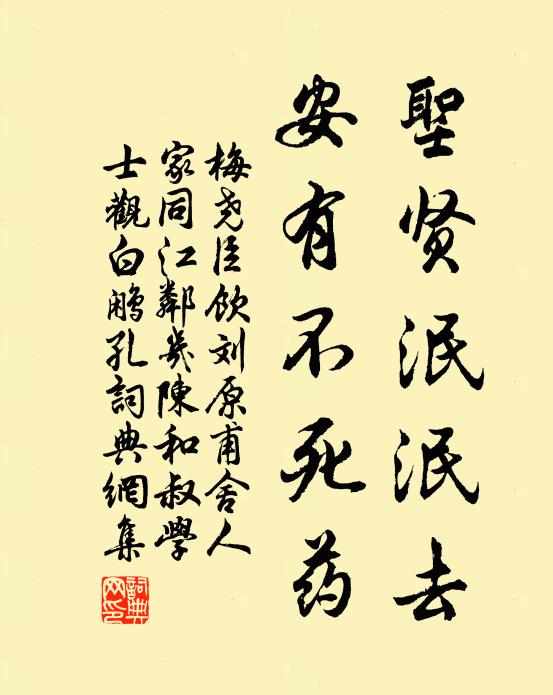 聖贤泯泯去
安有不死药
梅尧臣饮刘原甫舍人
家同江鄰幾陳和叔學
士觀白鹇孔詞典網集
詞典网印